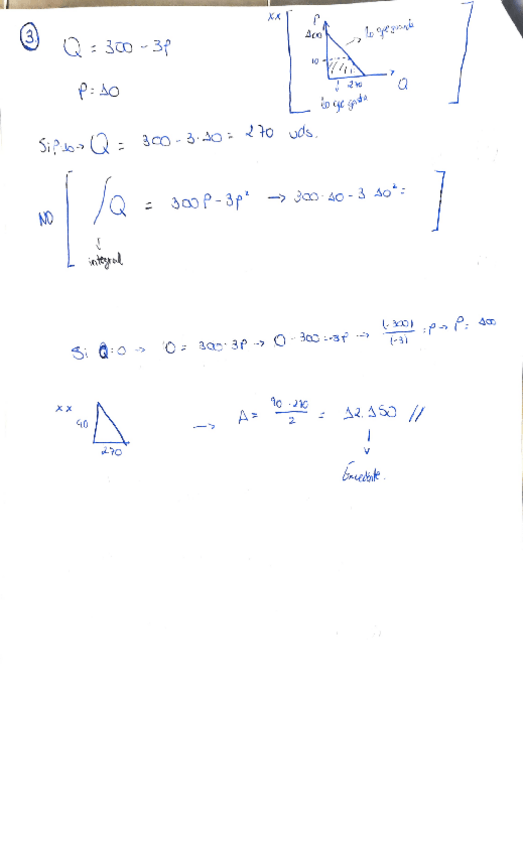 3.
Q = 300 - 3P
P = 10
xx
P
100
10
lo que gana
270
Q
lo que gasta
Si P=10 → Q = 300 - 3·10 = 270 uds.
NO
∫Q = 300P - 3P² → 300·10 - 3·10² =
integral
Si Q=0 → 0 = 300-3P → 0-300=-3P → (-300)/(-3) = P → P= 100
xx
90
270
→ A= 90·270/2 = 12.150 //
Excedente.